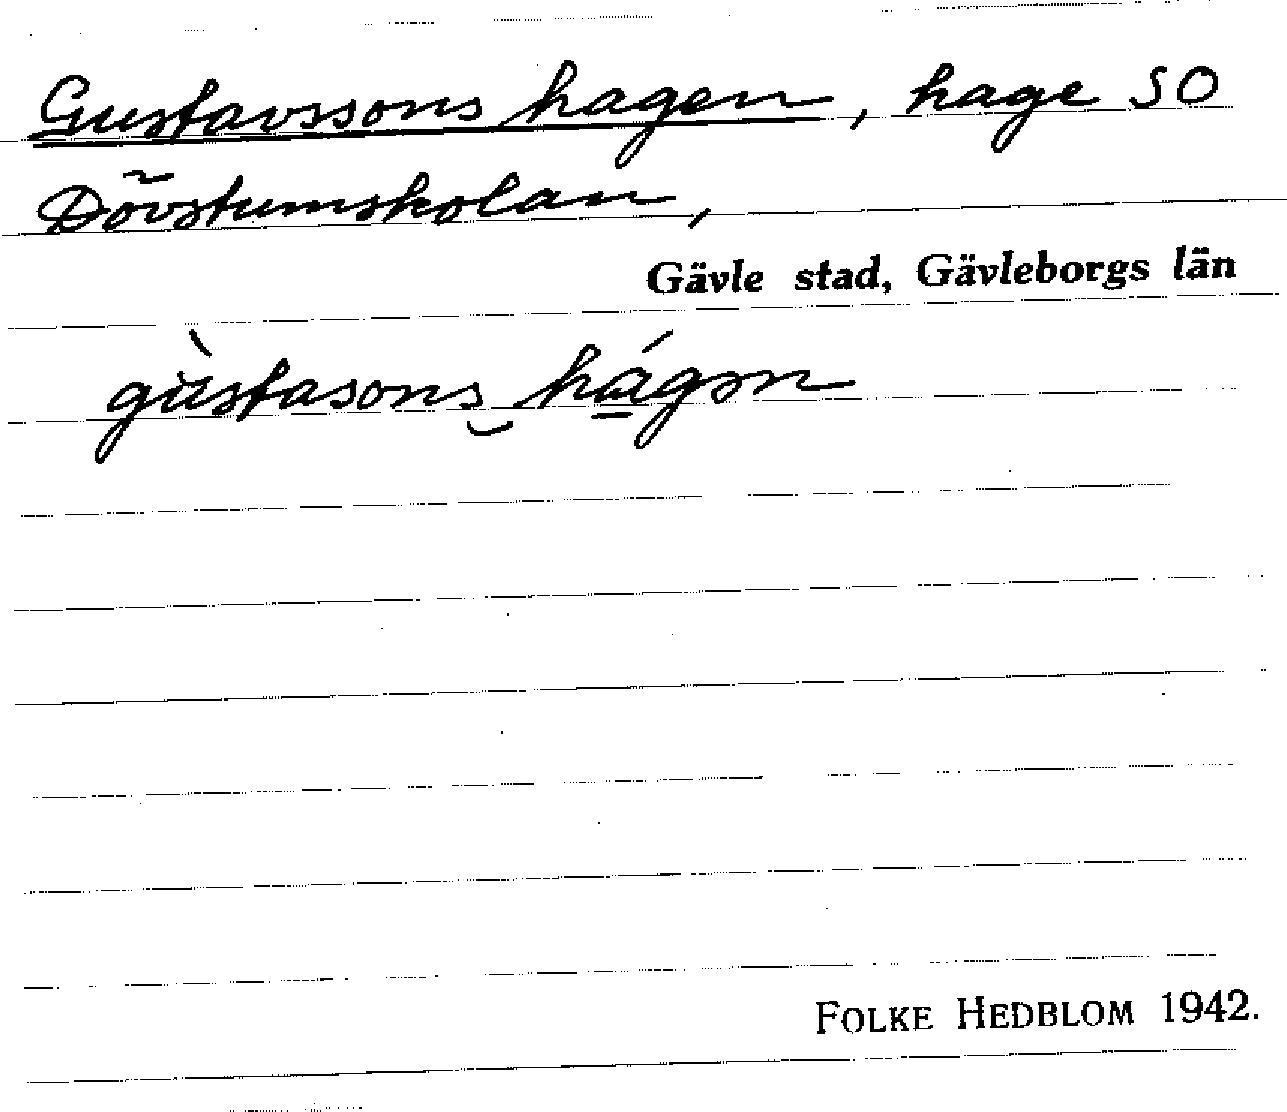 Gustavssons hagen, hage SO
Dövstumskolan,
Gävle stad, Gävleborgs län
gùstasons‿hágən
FOLKE HEDBLOM 1942.